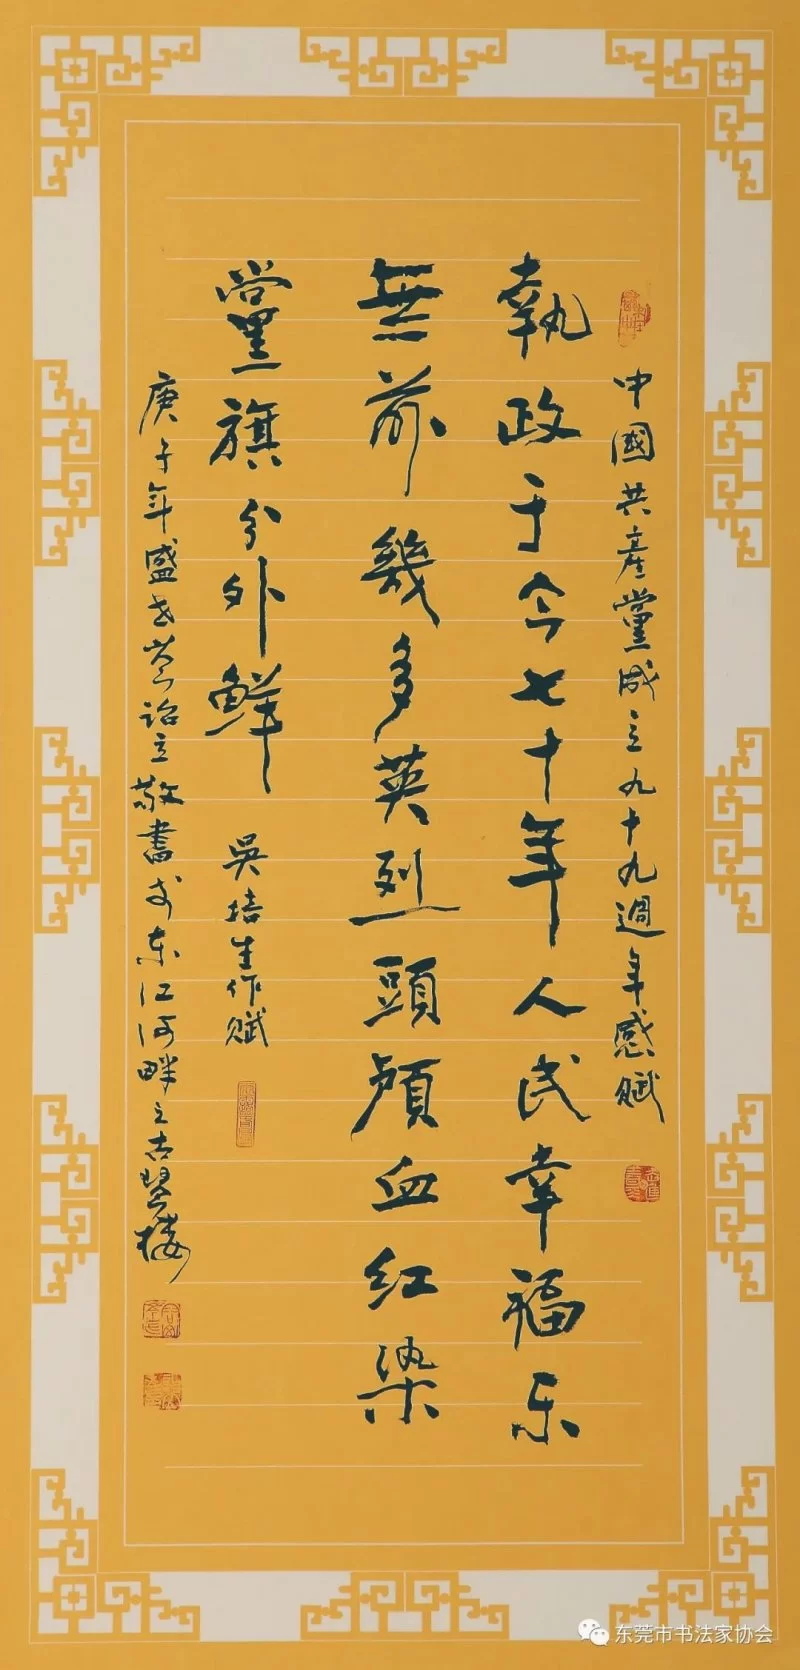 中國共產黨成立九十九週年感賦
執政于今七十年人民幸福乐
無前幾多英烈頭顱血红染
黨旗分外鮮
吳培生作賦
庚子年盛世 詒立敬書於东江河畔之古賢楼
东莞市书法家协会